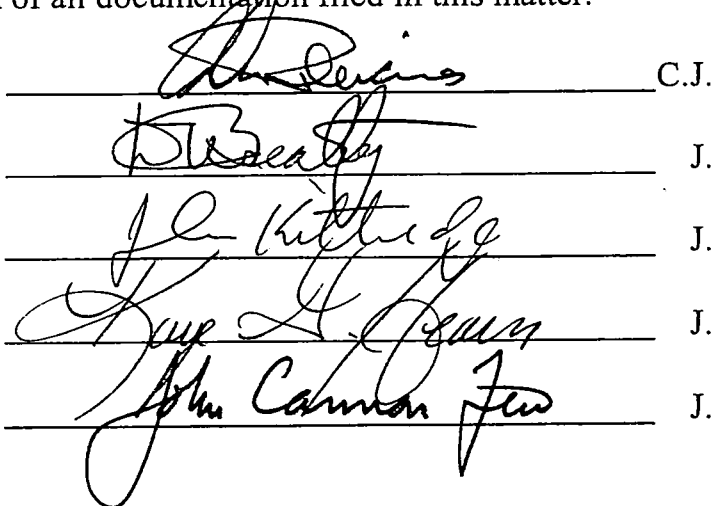 of all documentation filed in this matter.
C.J.
D Beatty J.
John Kittredge J.
Kaye G. Hearn J.
John Cannon Few J.